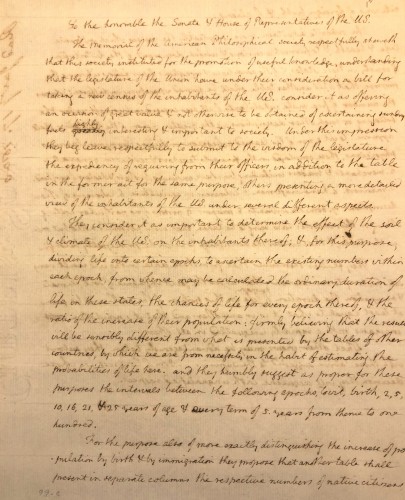 To the honorable the Senate & House of Representatives of the U.S.
The Memorial of the American Philosophical society respectfully sheweth
that this society instituted for the promotion of useful knolege, understanding
that the legislature of the Union have under their consideration a bill for
taking a new census of the inhabitants of the U.S. consider it as offering
an occasion of great value & not otherwise to be obtained of ascertaining sundry
facts highly interesting & important to society. Under this impression
they beg leave respectfully to submit to the wisdom of the legislature
the expediency of requiring from their officers, in addition to the table
in the former act for the same purpose, others presenting a more detailed
view of the inhabitants of the US. under several different aspects.
They consider it as important to determine the effect of the soil
& climate of the U.S. on the inhabitants thereof; & for this purpose,
dividing life into certain epochs, to ascertain the existing numbers within
each epoch, from whence may be calculated the ordinary duration of
life in these states, the chances of life for every epoch thereof, & the
ratio of the increase of their population: firmly believing that the result
will be sensibly different from what is presented by the tables of other
countries, by which we are from necessity in the habit of estimating the
probabilities of life here. and they humbly suggest as proper for these
purposes the intervals between the following epochs, towit, birth, 2, 5,
10, 16, 21, & 25 years of age & every term of 5. years from thence to one
hundred.
For the purpose also of more exactly distinguishing the increase of po-
-pulation by birth & by immigration they propose that another table shall
present in separate columns the respective numbers of native citizens